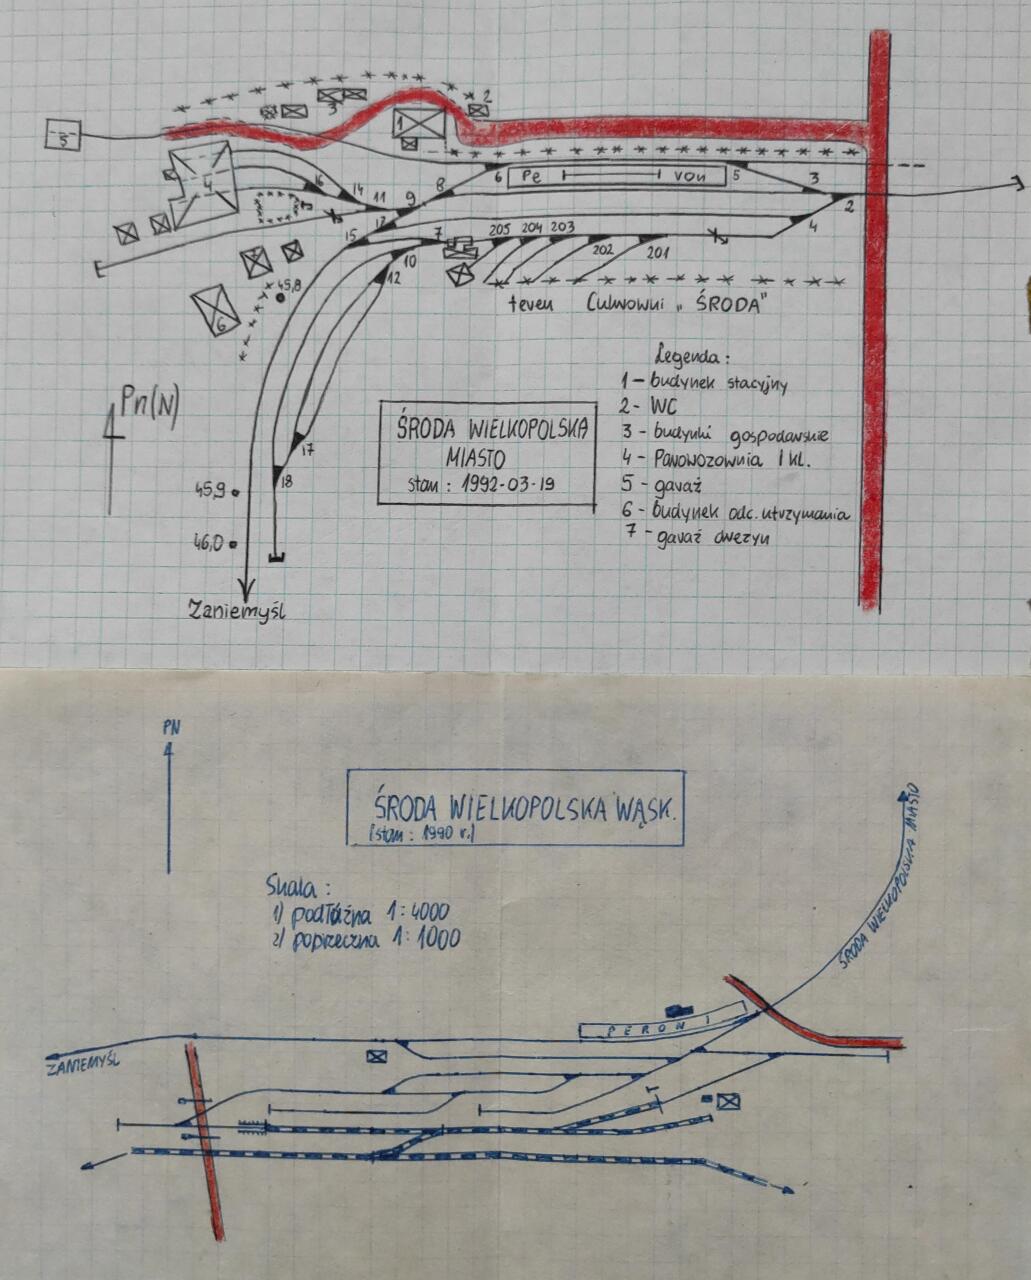 2
3
1
5
4
16
14
11
9
8
6
Pe ron
5
3
2
4
13
15
7
10
12
205 204 203
202 201
teren Cukrowni „ŚRODA"
45,8
6
17
18
45,9
46,0
Zaniemyśl
Pn(N)
ŚRODA WIELKOPOLSKA
MIASTO
stan : 1992-03-19
Legenda :
1 - budynek stacyjny
2 - WC
3 - budynki gospodarskie
4 - Parowozownia I kl.
5 - garaż
6 - budynek odc. utrzymania
7 - garaż drezyn
PN
ŚRODA WIELKOPOLSKA WĄSK.
(stan : 1990 r.)
Skala :
1) podłużna 1 : 4000
2) poprzeczna 1 : 1000
ŚRODA WIELKOPOLSKA MIASTO
PERON 1
ZANIEMYŚL